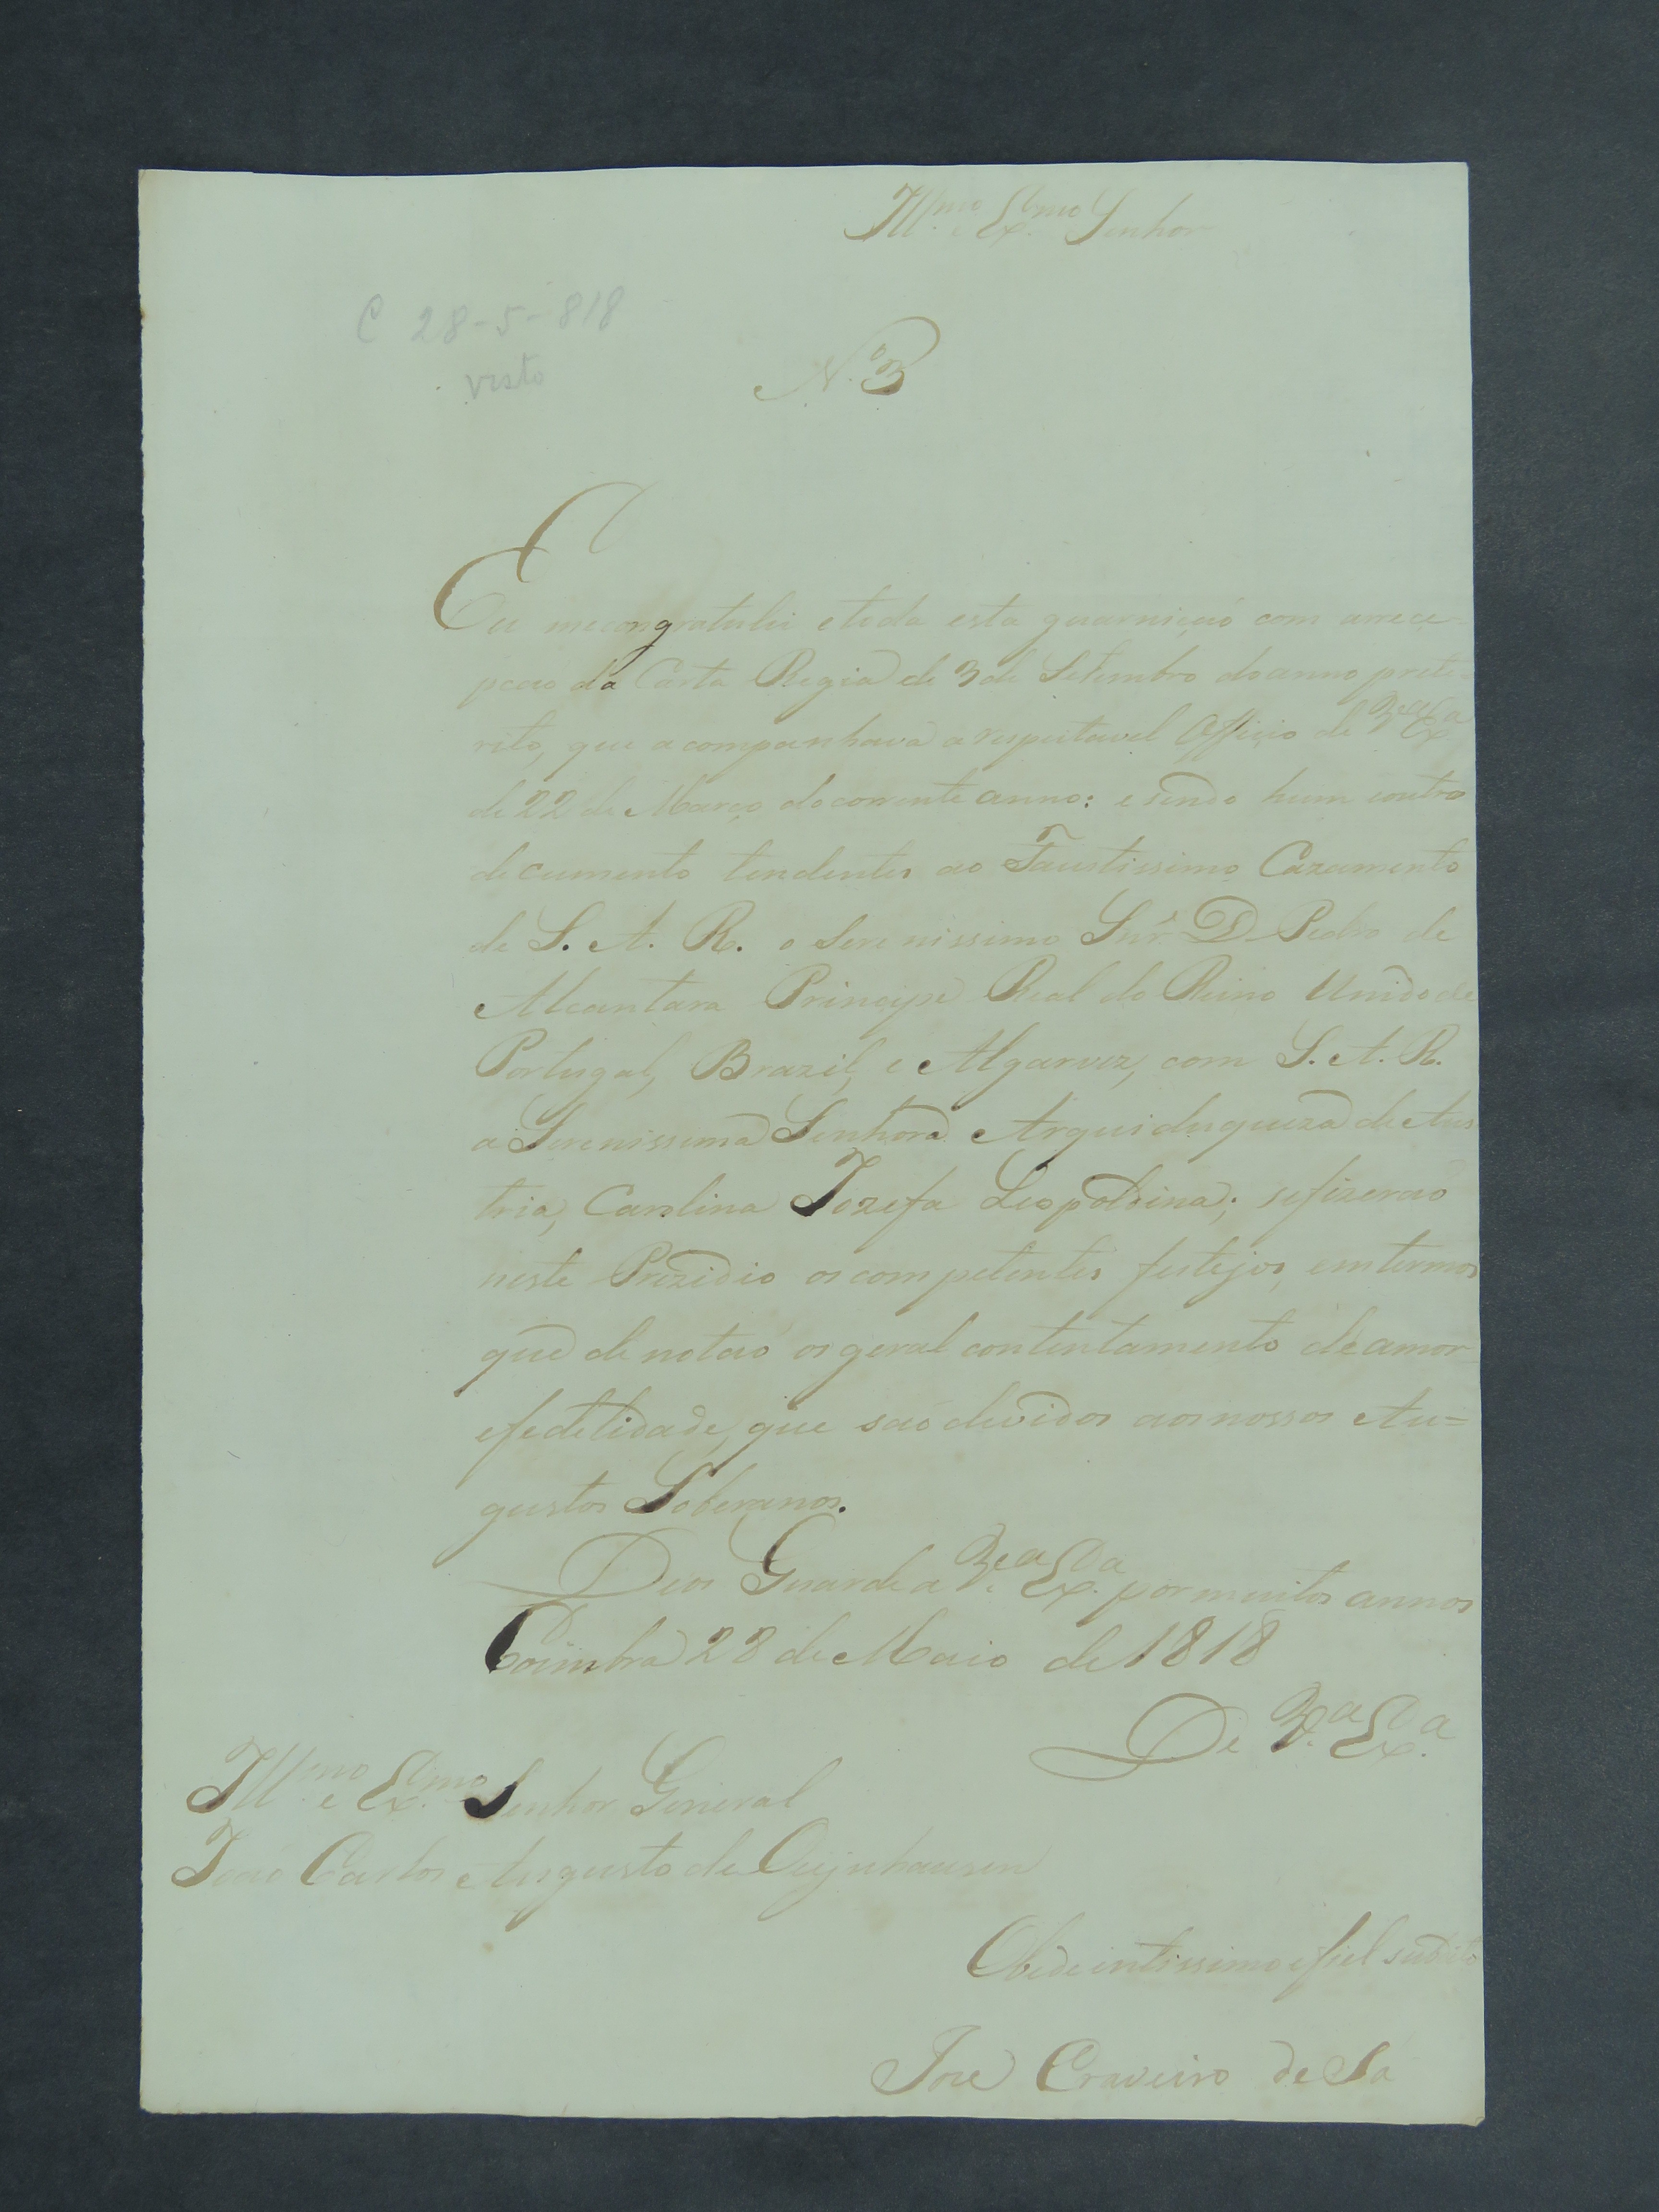 Ill.mo e Ex.mo Senhor
C 28-5-818
visto
N.º 3
Eu me congratulei e toda esta guarnição com a rece-
pção da Carta Regia de 3 de Setembro do anno prete-
rito, que acompanhava a respeitavel Officio de V.a Ex.a
de 22 de Março do corrente anno: e sendo hum e outro
documento tendentes ao Faustissimo Cazamento
de S. A. R. o Serenissimo Snr. D. Pedro de
Alcantara Principe Real do Reino Unido de
Portugal, Brazil, e Algarvez, com S. A. R.
a Serenissima Senhora Arquiduqueza de Aus
tria, Carolina Jozefa Leopoldina; se fizerão
neste Prezidio os competentes festejos, em termos
que denotão os geral contentamento de amor
e fedelidade, que são devidos aos nossos Au=
gustos Soberanos.
Deos Guarde a V.a Ex.a por muitos annos
Coimbra 28 de Maio de 1818
De V.a Ex.a
Ill.mo e Ex.mo Senhor General
João Carlos Augusto de Oeynhausen
Obedientissimo e fiel sudito
Joze Craveiro de Sá